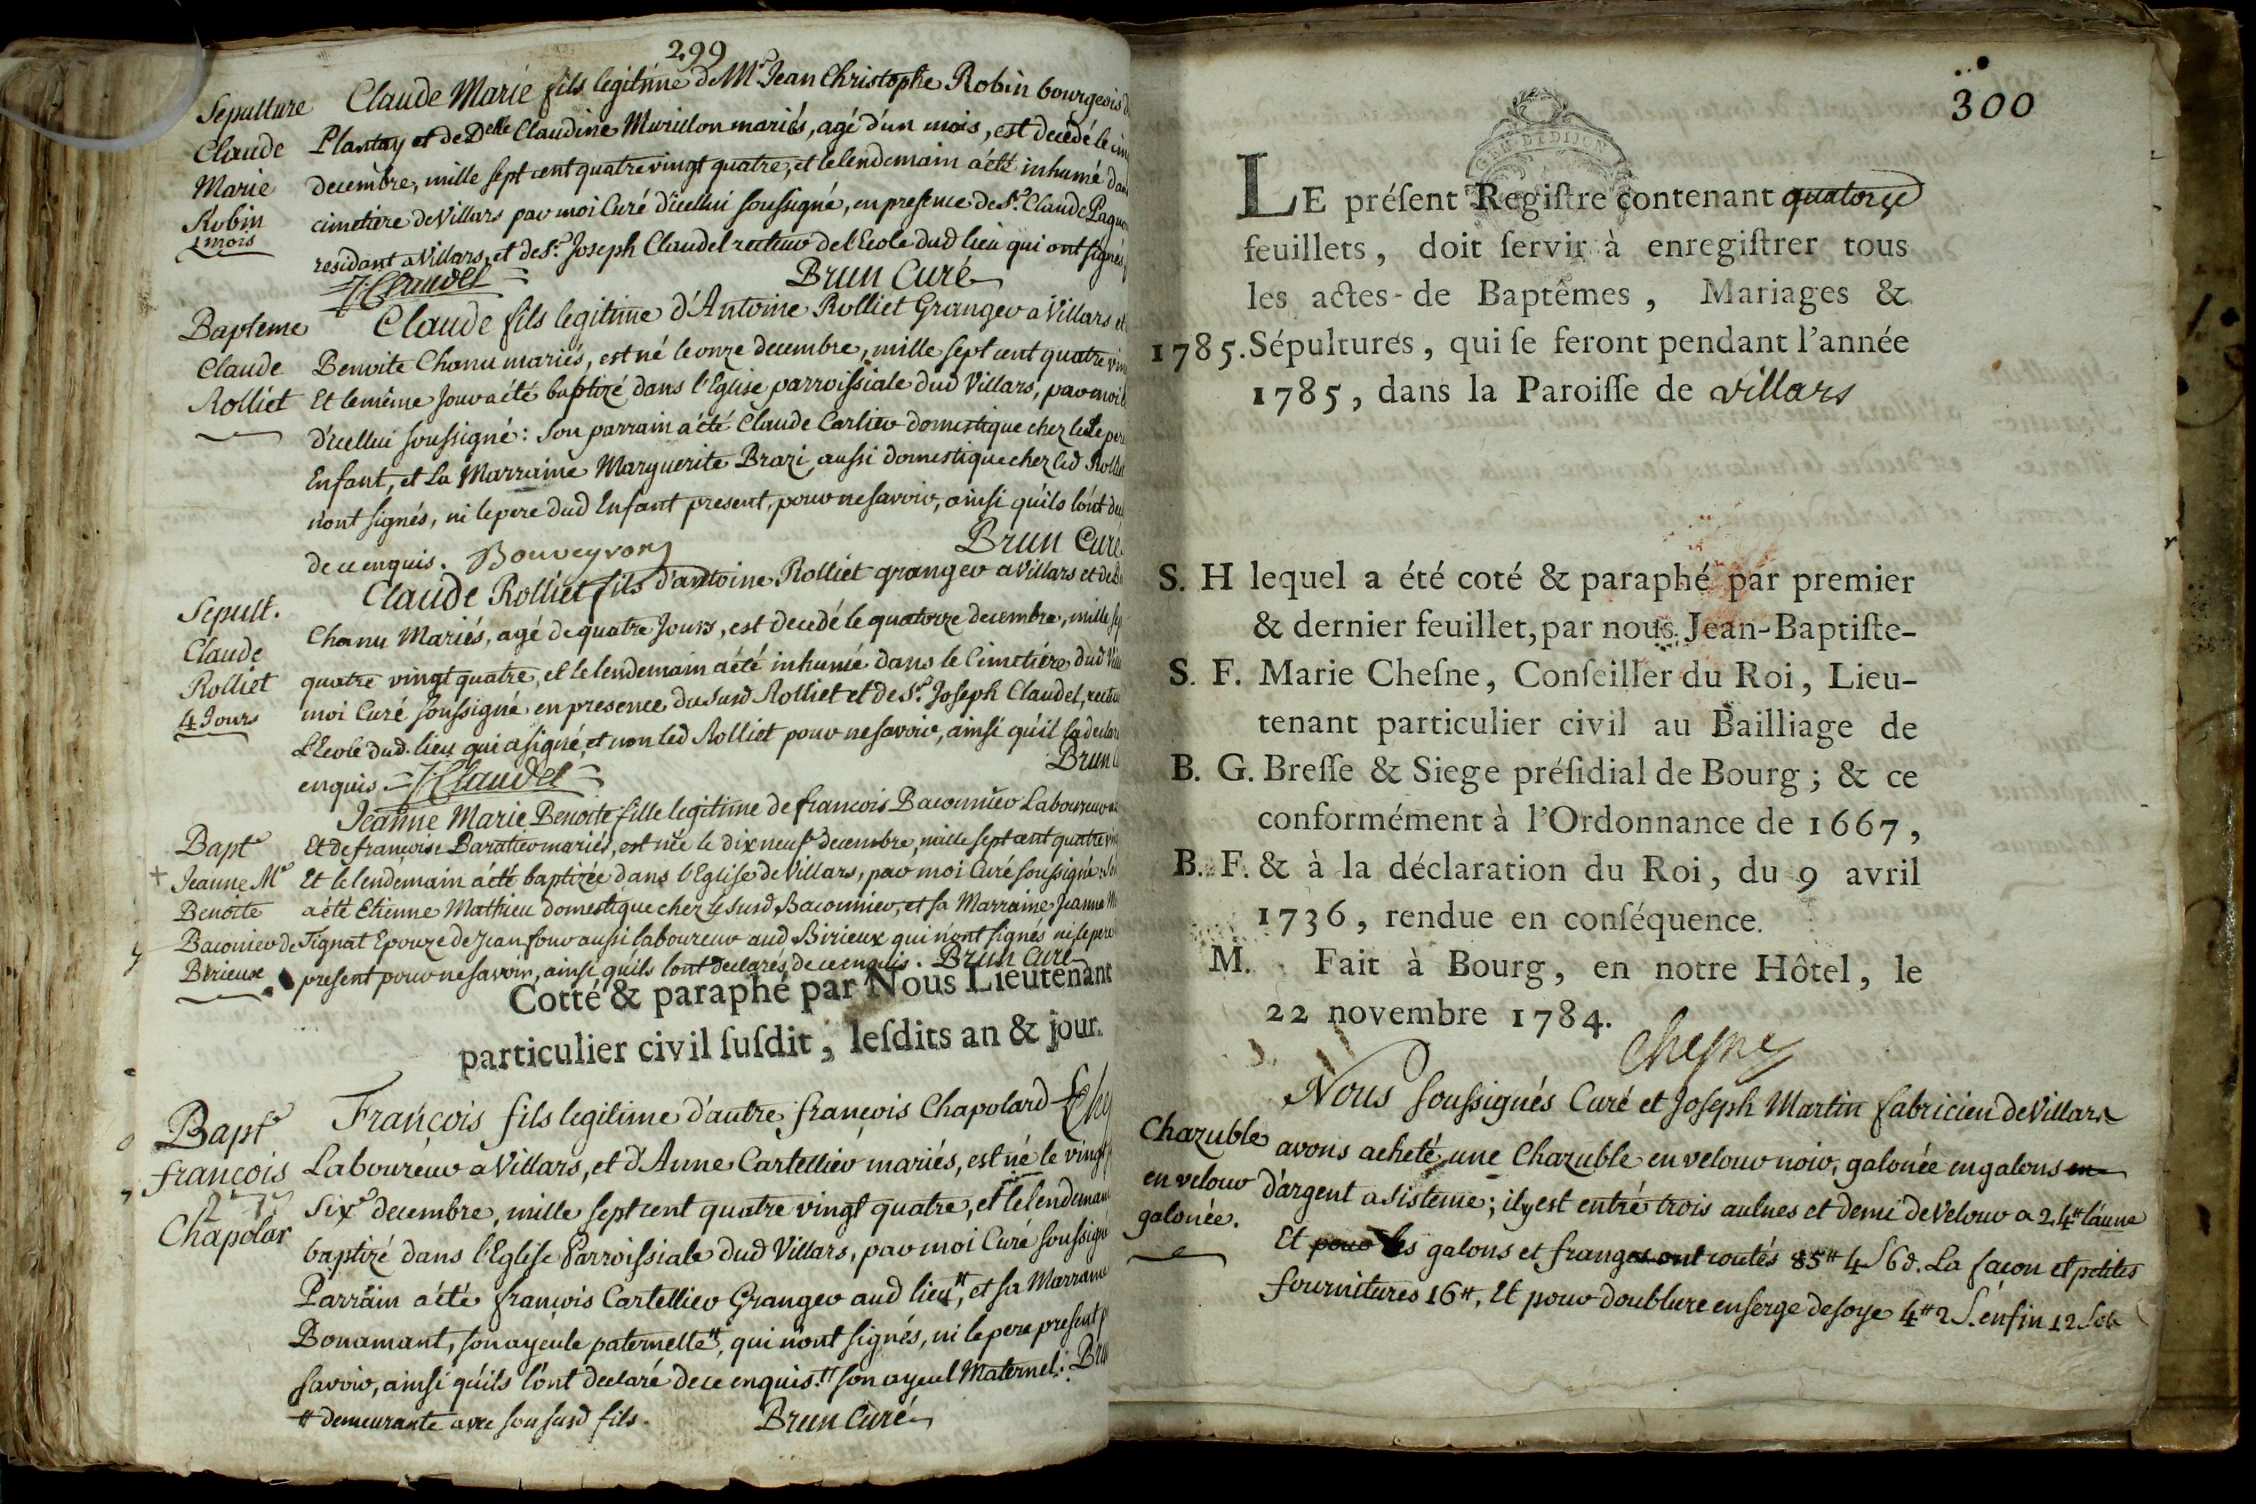 299
Sepulture Claude Marie fils legitime de Mr Jean Christophe Robin bourgeois
Claude Plantay et de Delle Claudine Murillon mariés, agé d'un mois, est decedé le
Marie decembre, mille sept cent quatre vingt quatre, et le lendemain a été inhumé
Robin cimetiere de Villars par moi Curé d'icellui soussigné, en presence de Sr. Claude
1 mois residant a Villars, et de Sr. Joseph Claudel recteur de l'Ecole dud lieu qui ont signés
J Claudel Brun Curé
Bapteme Claude fils legitime d'Antoine Rolliet Granger a Villars et
Claude Benoite Chanu mariés, est né le onze decembre, mille sept cent quatre
Rolliet Et le même Jour a été baptizé dans l'Eglise parroissiale dud Villars, par moi
d'icellui soussigné : Son parrain a été Claude Carlier domestique chez led pere
Enfant, et La Marraine Marguerite Brazi aussi domestique chez led
n'ont signés, ni le pere dud Enfant present, pour ne savoir, ainsi qu'ils l'ont
de ce enquis. Bouveyron Brun Curé
Sepult. Claude Rolliet fils d'antoine Rolliet granger a Villars et de
Claude Chanu Mariés, agé de quatre Jours, est decedé le quatorze decembre, mille
Rolliet quatre vingt quatre, et le lendemain a été inhumé dans le Cimetiére dud
4 Jours moi Curé soussigné en presence du susd Rolliet et de Sr. Joseph Claudel,
L'Ecole dud. lieu qui a signé, et non led Rolliet pour ne savoir, ainsi qu'il l'a
enquis J Claudel Brun
Jeanne Marie Benoite fille legitime de francois Baconnier Laboureur
Bapt Et de françoise Baratier mariés, est née le dix neuf decembre, mille sept cent quatre
+ Jeanne Me Et le lendemain a été baptizée dans l'Eglise de Villars, par moi Curé soussigné
Benoite a été Etienne Mathieu domestique chez le susd Baconnier, et sa Marraine Jeanne
Baconier de Tignat Epouze de Jean four aussi laboureur aud Birieux qui n'ont signés ni le pere
Birieux present pour ne savoir, ainsi qu'ils l'ont declarés de ce enquis. Brun Curé
Cotté & paraphé par Nous Lieutenant
particulier civil susdit, lesdits an & jour.
Bapt François fils legitime d'autre françois Chapolard
françois Laboureur a Villars, et d'Anne Cartellier mariés, est né le vingt
Chapolar Six decembre, mille sept cent quatre vingt quatre, et le lendemain
baptizé dans l'Eglise Parroissiale dud Villars, par moi Curé soussigné
Parrain a été françois Cartellier Granger aud lieu #, et sa Marraine
Bonamant, son ayeule paternelle #, qui n'ont signés, ni le pere present
savoir, ainsi qu'ils l'ont declaré de ce enquis. # son ayeul Maternel.
# demeurante avec son susd fils. Brun Curé
300
GEN. DE DIJON
LE présent Registre contenant quatorze
feuillets, doit servir à enregistrer tous
les actes de Baptêmes, Mariages &
1785. Sépultures, qui se feront pendant l'année
1785, dans la Paroisse de villars
S. H lequel a été coté & paraphé par premier
& dernier feuillet, par nous Jean-Baptiste-
S. F. Marie Chesne, Conseiller du Roi, Lieu-
tenant particulier civil au Bailliage de
B. G. Bresse & Siege présidial de Bourg ; & ce
conformément à l'Ordonnance de 1667,
B. F. & à la déclaration du Roi, du 9 avril
1736, rendue en conséquence.
M. Fait à Bourg, en notre Hôtel, le
22 novembre 1784.
Chesne
Nous soussignés Curé et Joseph Martin fabricien de Villars
Chazuble avons acheté une Chazuble en velour noir, galonée en galons
en velour d'argent a sisteme ; il y est entré trois aulnes et demi de Velour a 24# l'aune
galonée. Et pour les galons et franges ont coutés 85# 4 S 6 d. La façon et petites
fournitures 16#, Et pour doublure en serge de soye 4# 2 S. enfin 12